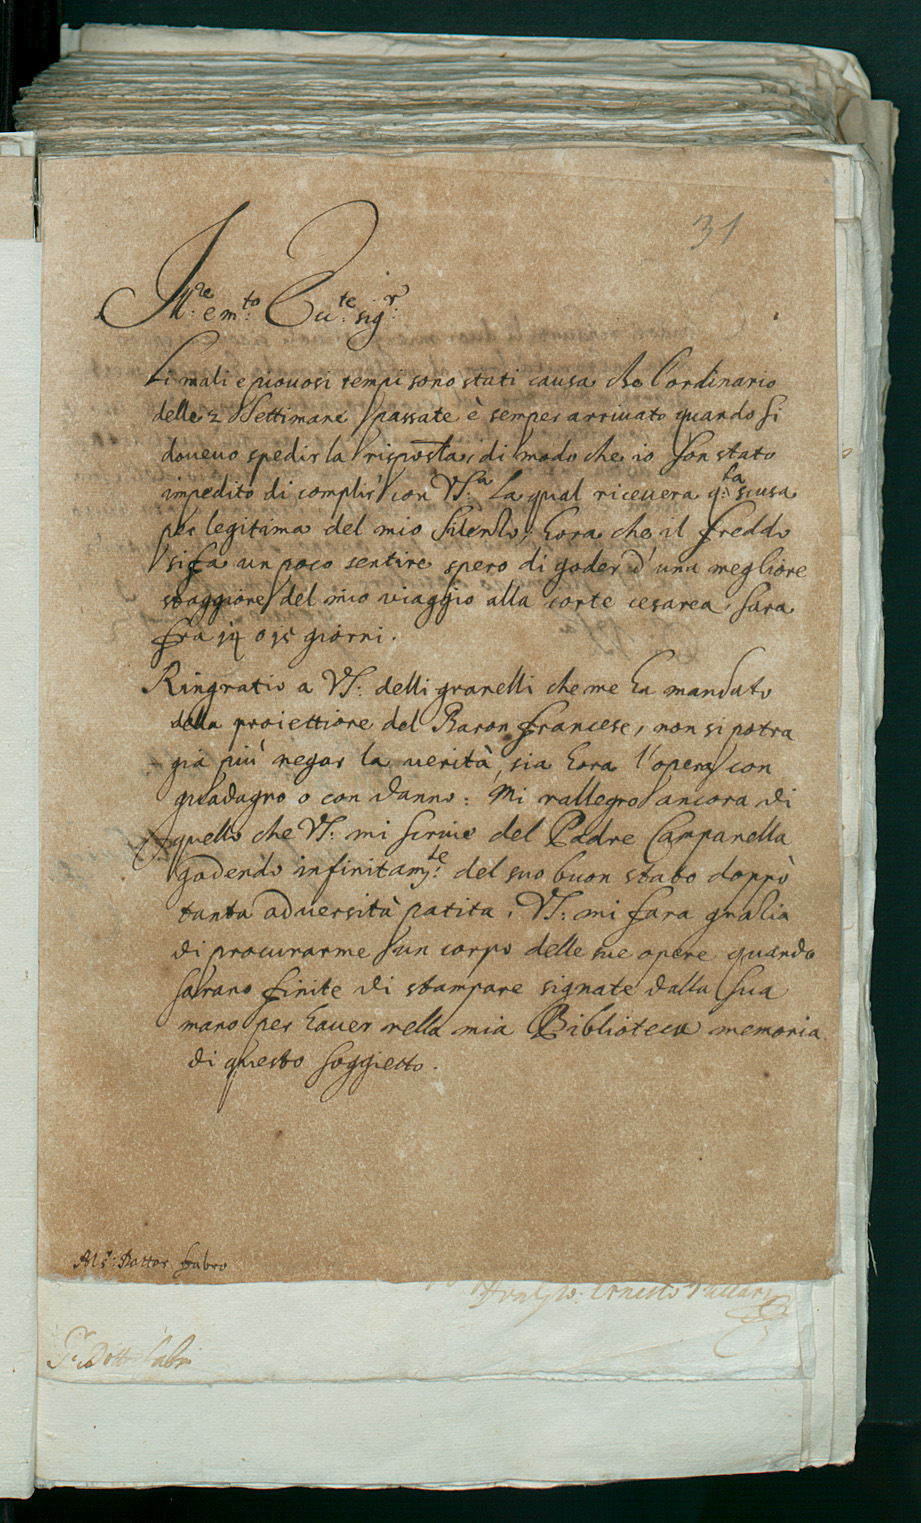 31
Ill.re e m.to Ecc.te sig.r
Li mali e piouosi tempi sono stati causa che l'ordinario
delle 2 Settimane passate è semper arriuato quando si
doueuo spedir la risposta, di modo che io son stato
impedito di complir con VS.a La qual riceuera q.sta scusa
per legitima del mio silentio, hora che il freddo
si fa un poco sentire spero di goder d'una megliore
staggione del mio viaggio alla corte cesarea, sara
fra 14 o 15 giorni.
Ringratio a VS: delli granelli che me ha mandato
della proiettione del Baron francese, non si potra
gia più negar la verità, sia hora l'opera con
guadagno o con danno: Mi rallegro ancora di
quello che VS: mi scriue del Padre Campanella
godendo infinitam.te del suo buon stato doppò
tanta aduersità patita. VS: mi fara gratia
di procurarme un corpo delle sue opere quando
sarano finite di stampare signate dalla sua
mano per hauer nella mia Biblioteca memoria
di questo soggietto.
Al S.r Dottor Fabro
Ernesto
S.r Dott. Fabri